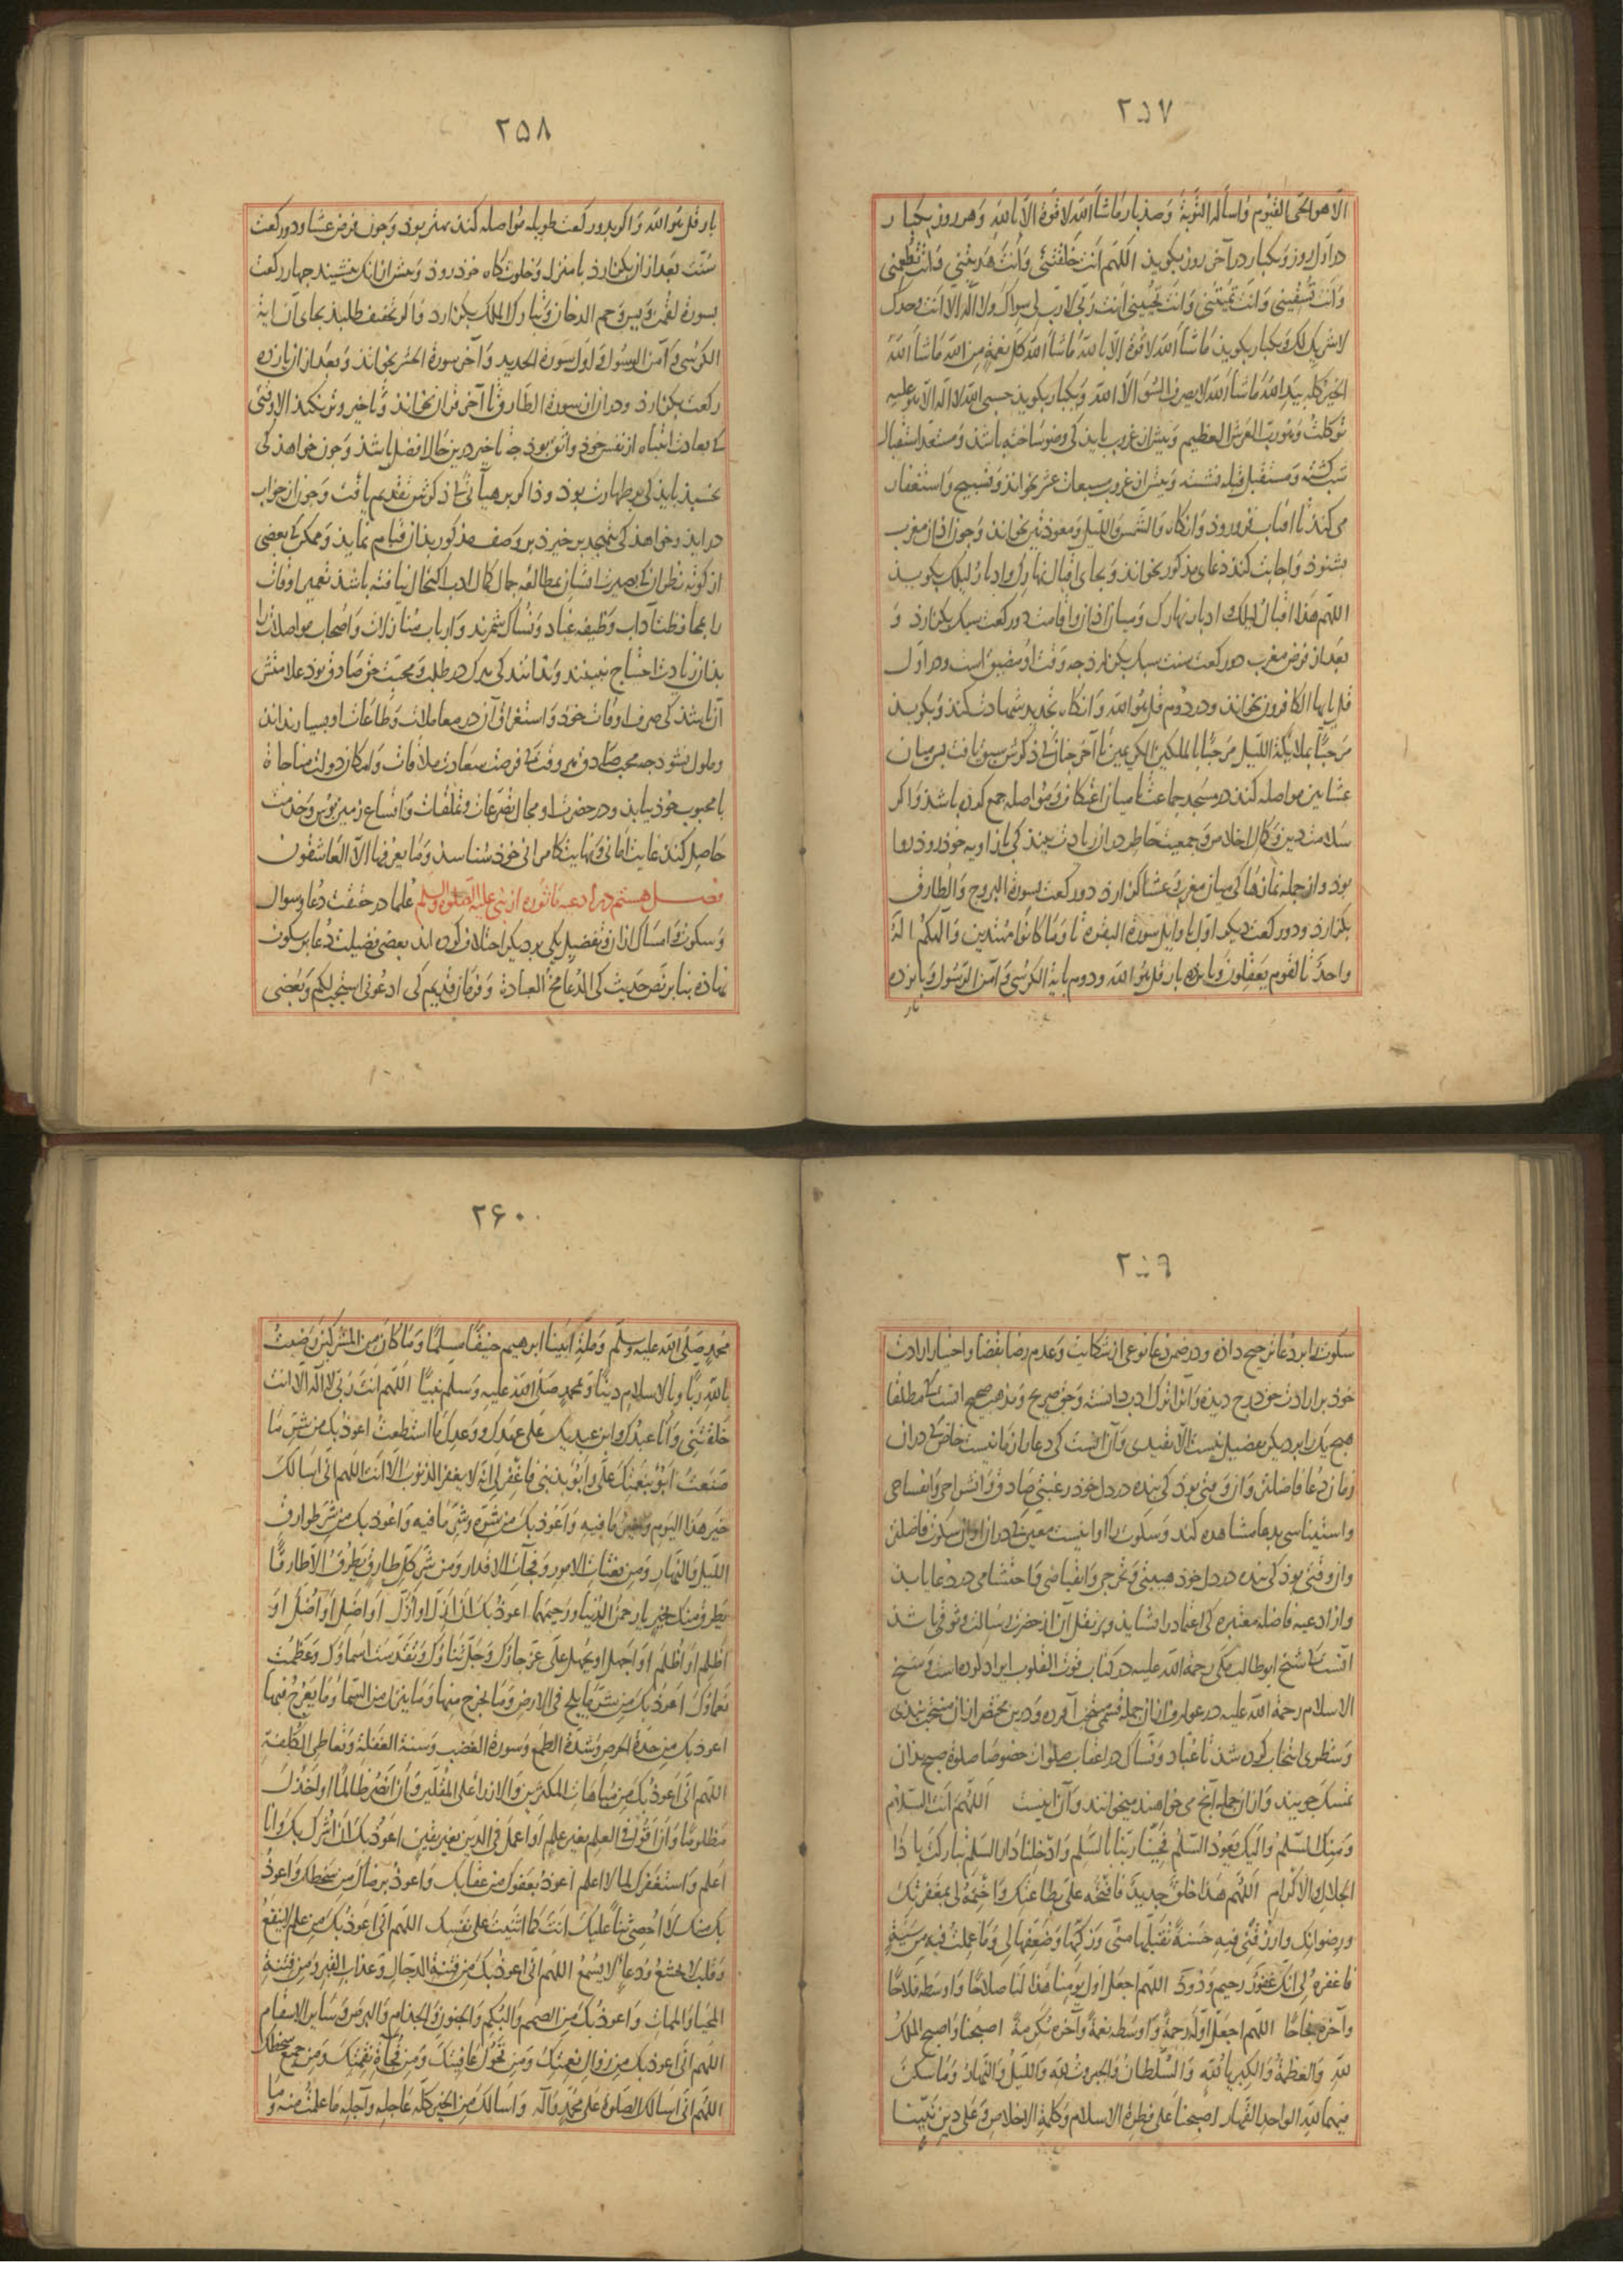 ۲۵۷
الا هو الحی القیوم و اسأله التوبة و صد بار ما شا الله لا قوة الا بالله و هر روز یکبار
در اول روز و یکبار در آخر روز بکوید اللهم انت خلقتنی و انت هدیتنی و انت تطعمنی
و انت تسقینی و انت تمیتنی و انت تحیینی انت ربی لا رب لی سواک و لا اله الا انت وحدک
لا شریک لک و یکبار بکوید ما شا الله لا قوة الا بالله ما شا الله کل نعمة من الله ما شا الله
الخیر کله بید الله ما شا الله لا یصرف السو الا الله و یکبار بکوید حسبی الله لا اله الا هو علیه
توکلت و هو رب العرش العظیم و پیش از غروب باید کی وضو ساخته باشد و مستعد استقبال
شب کشته و مستقبل قبله نشسته و پیش از غروب مسبعات عشر بخواند و تسبیح و استغفار
می کند تا افتاب فرو رود و انکاه والشمس واللیل و معوذتین بخواند و جون اذان مغرب
بشنود و اجابت کند دعای مذکور بخواند و بجای اقبال نهارک و ادبار لیلک بکوید
اللهم هذا اقبال لیلک و ادبار نهارک و میان اذان و اقامت دو رکعت سبک بکزارد و
بعد از فرض مغرب دو رکعت سنت سبک بکزارد جه وقت او مضیق است و در اول
قل یا ایها الکافرون بخواند و در دوم قل هو الله و انکاه تجدید شهادت کند و بکوید
مرحبا بملایکة اللیل مرحبا بالملکین الکریمین تا آخر جنانک ذکرش سبق یافت پس میان
عشاین مواصله کند در مسجد جماعت تا میان اعتکاف و مواصله جمع کرده باشد و اکر
سلامت دین و کمال اخلاص و جمعیت خاطر در ان زیادت بیند کی با زاویه خود رود روا
بود و از جمله نمازها کی میان مغرب و عشا کزارد دو رکعت بسورة البروج و الطارق
بکزارد و دو رکعت دیکر اول باوایل سورة البقره تا و ما کانوا مهتدین و الهکم اله
واحد تا لقوم یعقلون و پانزده بار قل هو الله و دوم بآیة الکرسی و آمن الرسول و پانزده
بار
۲۵۸
بار قل هو الله و اکر بدو رکعت طویله مواصله کند بهتر بود و جون فرض عشا و دو رکعت
سنت بعد از ان بکزارد با منزل و خلوتکاه خود رود و پیش از انک بنشیند جهار رکعت
بسورة لقمن و یس و حم الدخان و تبارک الملک بکزارد و اکر تخفیف طلبد بجای آن ایة
الکرسی و آمن الرسول و اول سورة الحدید و آخر سورة الحشر بخواند و بعد از ان یازده
رکعت بکزارد و در ان از سورة الطارق تا آخر قرآن بخواند و تاخیر وتر نکند الا وقتی
کی بعادت انتباه از نفس خود واثق بود جه تاخیر درین حال افضل باشد و جون خواهد کی
بخسبد باید کی بر طهارت بود و ذاکر بر هیأتی کی ذکرش تقدیم یافت و جون از خواب
در اید و خواهد کی بتهجد بر خیزد بر وصف مذکور بدان قیام نماید و ممکن کی بعضی
از کوته نظران کی بصیرت ایشان بمطالعه جمال کمال ادب اکتحال نیافته باشد تعمیر اوقات
را بمحافظت آداب وظیفه عباد و نساک شمرند و ارباب منازلات و اصحاب مواصلات را
بدان زیادت احتیاج نبینند و ندانند کی هرک در طلب و محبت حق صادق بود علامتش
آن باشد کی صرف اوقات خود و استغراق آن در معاملات و طاعات او بسیار نداند
و ملول نشود جه محب صادق هر وقت کی فرصت سعادت ملاقات و امکان دولت مناجاة
با محبوب خود بیابد و در حضرت او مجال تضرعات و تملقات و اتساع زمین بوس و خدمت
حاصل کند غایت امانی و نهایت کامرانی خود شناسد و ما یعرفها الا العاشقون
فصل هشتم در ادعیه ماثوره از نبی علیه الصلوة والسلم علما در حقیقت دعا و سوال
و سکوت و امساک از ان و تفضیل یکی بر دیکر اختلاف کرده اند بعضی فضیلت دعا بر سکوت
نهاده بنا بر نص حدیث کی الدعا مخ العبادة و فرمان قدیم کی ادعونی استجب لکم و بعضی
۲۵۹
سکوت را بر دعا ترجیح داده و در ضمن دعا نوعی از شکایت و عدم رضا بقضا و اختیار ارادت
خود بر ارادت حق درج دیده و آن را ترک ادب دانسته و حق صریح و مذهب صحیح انست کی مطلقا
هیج یک را بر دیکر تفضیل نیست الا بقیدی و آن انست کی دعا را زمانیست خاص کی در ان
زمان دعا فاضلتر و ان وقتی بود کی بنده در دل خود رغبتی صادق و انشراحی و انفساحی
و استیناسی بدعا مشاهده کند و سکوت را اوانیست معین کی در ان اوان سکوت فاضلتر
و ان وقتی بود کی بنده در دل خود هیبتی و تحرجی و انقباضی و احتشامی در دعا یابد
و از ادعیه فاضله معتبره کی اعتماد را شاید و بر نقل آن از حضرت رسالت وثوقی باشد
انست کی شیخ ابو طالب مکی رحمة الله علیه در کتاب قوت القلوب ایراد کرده است و شیخ
الاسلام رحمة الله علیه در عوارف از ان جمله قسمی منتخب آورده و درین مختصر از ان منتخب نبذی
و سطوری انتخاب کرده شد تا عباد و نساک در اعقاب صلوات خصوصا صلوة صبح بدان
تمسک جویند و از ان جمله آنج می خواهند میخوانند و آن اینست اللهم انت السلام
و منک السلم و الیک یعود السلم فحینا ربنا بالسلم و ادخلنا دار السلم تبارکت یا ذا
الجلال والاکرام اللهم هذا خلق جدید فافتحه علی بطاعتک و اختمه لی بمغفرتک
و رضوانک و ارزقنی فیه حسنة تقبلها منی و زکها و ضعفها لی و ما عملت فیه من سیئة
فاغفره لی انک غفور رحیم ودود اللهم اجعل اول یومنا هذا لنا صلاحا و اوسطه فلاحا
و آخره نجاحا اللهم اجعل اوله رحمة و اوسطه نعمة و آخره تکرمة اصبحنا و اصبح الملک
لله والعظمة والکبریا لله والسلطان والجبروت لله واللیل والنهار وما سکن
فیهما لله الواحد القهار اصبحنا علی فطرة الاسلام وکلمة الاخلاص وعلی دین نبینا
۲۶۰
محمد صلی الله علیه وسلم وملة ابینا ابرهیم حنیفا مسلما وما کان من المشرکین رضیت
بالله ربا وبالاسلام دینا وبمحمد صلی الله علیه وسلم نبیا اللهم انت ربی لا اله الا انت
خلقتنی وانا عبدک وابن عبدیک علی عهدک ووعدک ما استطعت اعوذ بک من شر ما
صنعت ابوؤ بنعمتک علی وابوؤ بذنبی فاغفر لی انه لا یغفر الذنوب الا انت اللهم انی اسالک
خیر هذا الیوم وخیر ما فیه واعوذ بک من شره وشر ما فیه واعوذ بک من شر طوارق
اللیل والنهار ومن بغتات الامور وفجآت الاقدار ومن شر کل طارق یطرق الا طارقا
یطرق منک بخیر یا رحمن الدنیا ورحیمهما اعوذ بک ان ازل او ازل او اضل او اضل او
اظلم او اظلم او اجهل او یجهل علی عز جارک وجل ثناؤک وتقدست اسماؤک وعظمت
نعماؤک اعوذ بک من شر ما یلج فی الارض وما یخرج منها وما ینزل من السما وما یعرج فیها
اعوذ بک من حدة الحرص وشدة الطمع وسورة الغضب وسنة الغفلة وتعاطی الکلفة
اللهم انی اعوذ بک من مباهات المکثرین والازراء علی المقلین وان انصر ظالما او اخذل
مظلوما وان اقول فی العلم بغیر علم او اعمل فی الدین بغیر یقین اعوذ بک ان اشرک بک وانا
اعلم واستغفرک لما لا اعلم اعوذ بعفوک من عقابک واعوذ برضاک من سخطک واعوذ
بک منک لا احصی ثناء علیک انت کما اثنیت علی نفسک اللهم انی اعوذ بک من علم لا ینفع
وقلب لا یخشع ودعاء لا یسمع اللهم انی اعوذ بک من فتنة الدجال وعذاب القبر ومن فتنة
المحیا والممات واعوذ بک من الصمم والبکم والجنون والجذام والبرص وسایر الاسقام
اللهم انی اعوذ بک من زوال نعمتک ومن تحول عافیتک ومن فجاءة نقمتک ومن جمیع سخطک
اللهم انی اسالک الصلوة علی محمد وآله واسالک من الخیر کله عاجله وآجله ما علمت منه وما